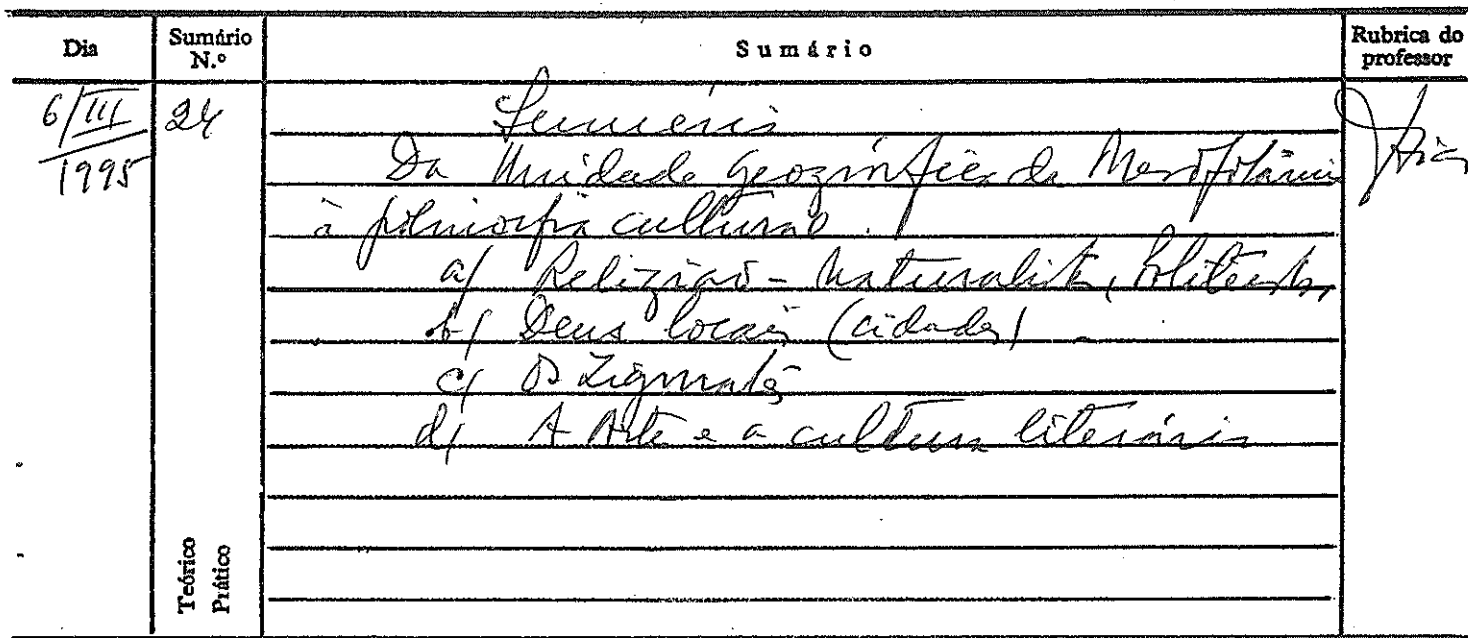 Dia Sumário N.º Sumário Rubrica do professor
6/III/1995 24 Suméria
Da Unidade geográfica da Mesopotâmia
à polimorfia cultural.
a/ Religião - Naturalista, Politeísta,
b/ Deus locais (cidades)
c/ Os Zigurates
d/ A Arte e a cultura literária
Teórico
Prático